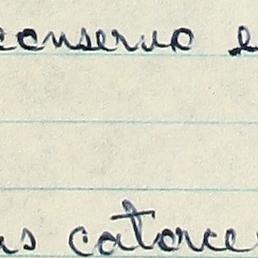 conservo e
as catorce